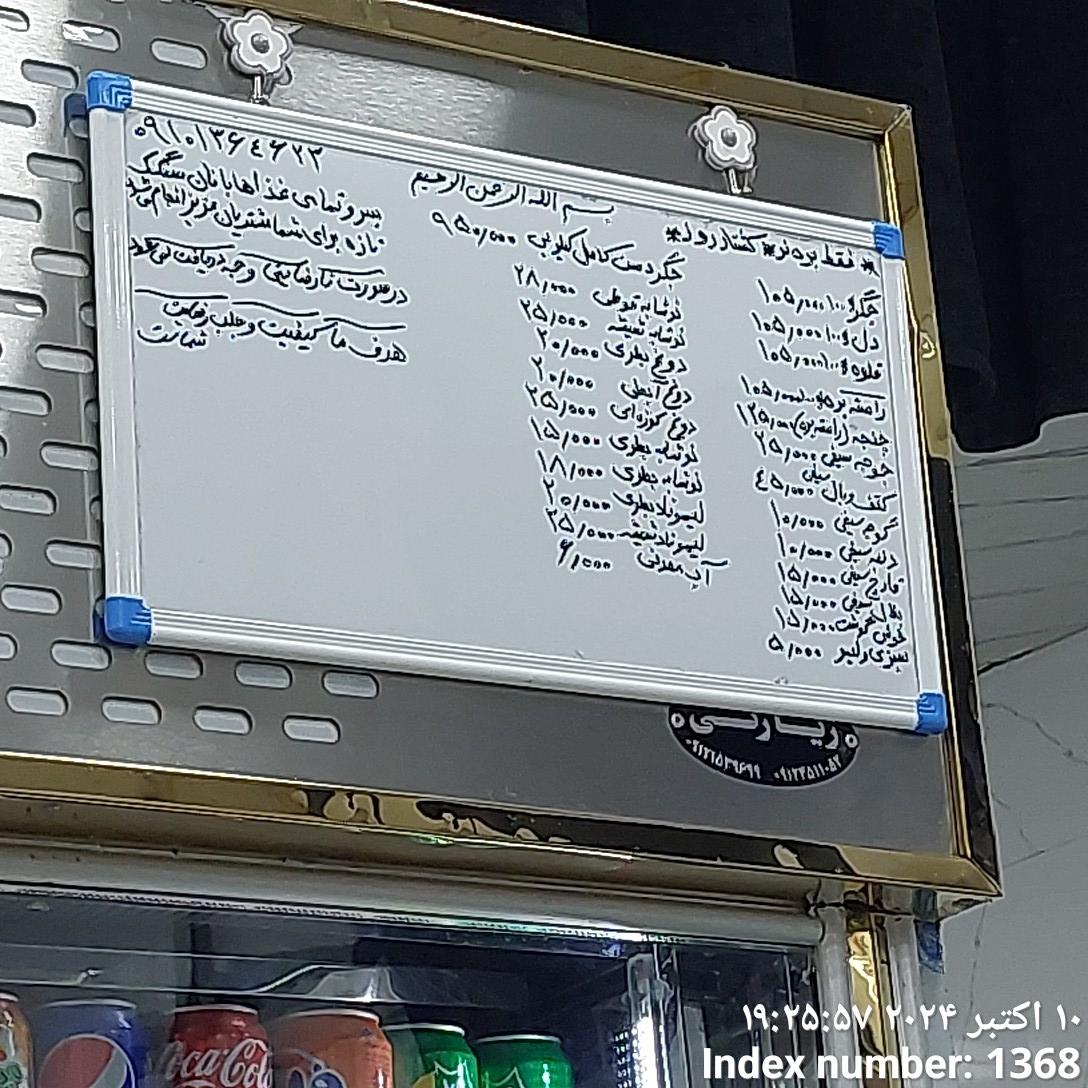 بسم الله الرحمن الرحیم
* فقط بره نر * کشتار روز *
جگر ۱۰۰g ۱۰۵,۰۰۰
دل ۱۰۰g ۱۰۵,۰۰۰
قلوه ۱۰۰g ۱۰۵,۰۰۰
راسته بره ۱۰۵,۰۰۰
چنجه (راسته بره) ۱۲۵,۰۰۰
جوجه سیخی ۲۵,۰۰۰
کتف و بال سیخی ۴۵,۰۰۰
گوجه سیخی ۱۰,۰۰۰
دنبه سیخی ۱۰,۰۰۰
قارچ سیخی ۱۵,۰۰۰
سیخی ۱۵,۰۰۰
گوشت ۱۵,۰۰۰
سبزی و لیمو ۵,۰۰۰
جگر دست کامل کیلویی ۹۵۰,۰۰۰
نوشابه قوطی ۲۸,۰۰۰
نوشابه شیشه ۲۵,۰۰۰
دوغ بطری ۲۰,۰۰۰
دوغ آبعلی ۲۰,۰۰۰
دوغ کوزه‌ای ۲۵,۰۰۰
نوشابه بطری ۱۵,۰۰۰
نوشابه بطری ۱۸,۰۰۰
لیموناد بطری ۲۰,۰۰۰
لیموناد شیشه ۳۵,۰۰۰
آب معدنی ۶,۰۰۰
۰۹۱۰۱۳۶۴۶۲۳
سرو تمامی غذاها با نان سنگک
تازه برای شما مشتریان عزیز انجام می‌شود
درصورت نارضایتی وجه دریافت نمی‌شود
هدف ما کیفیت و جلب رضایت
شماست
زیارتی
۰۹۱۲۱۵۳۹۶۹۹ ۰۹۱۲۲۵۱۱۰۵۲
Coca-Cola
۱۰ اکتبر ۲۰۲۴ ۱۹:۲۵:۵۷
Index number: 1368